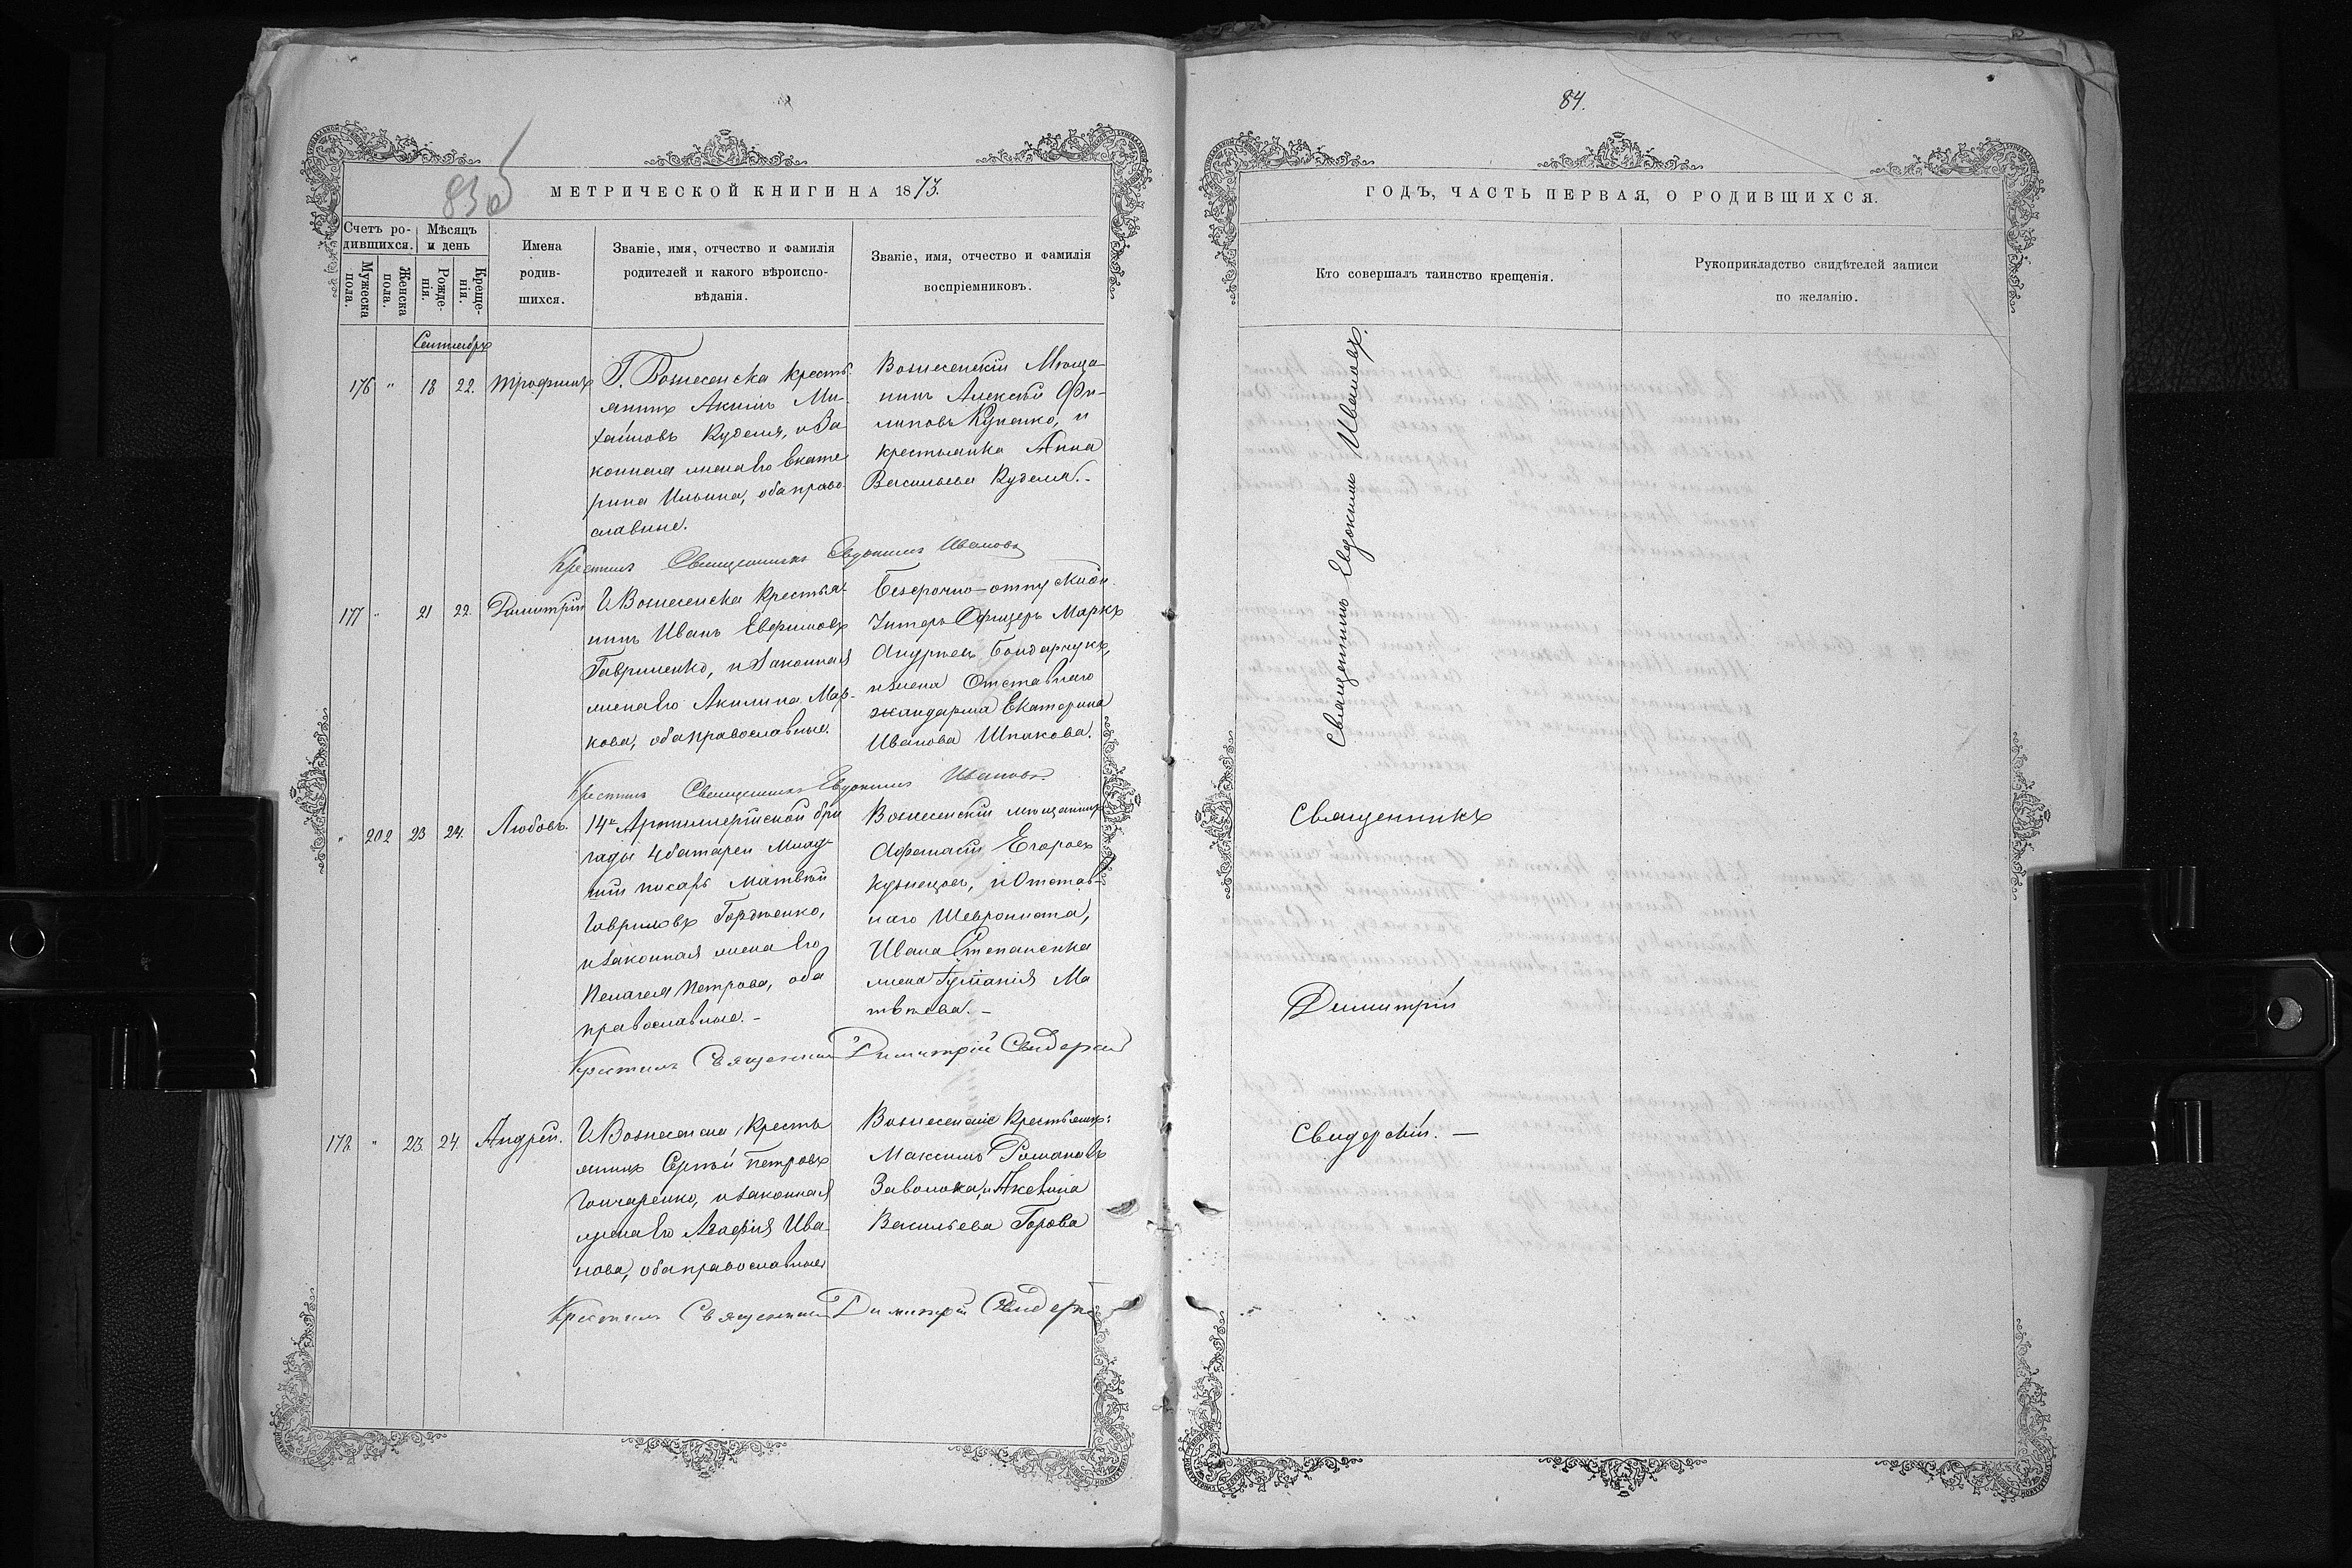 83 об
МЕТРИЧЕСКОЙ КНИГИ НА 1873.
Счетъ ро-
дившихся.
Мужеска
пола.
Женска
пола.
Мѣсяцъ
и день
Рожде-
нія.
Креще-
нія.
Имена
родив-
шихся.
Званіе, имя, отчество и фамилія
родителей и какого вѣроиспо-
вѣданія.
Званіе, имя, отчество и фамилія
воспріемниковъ.
Сентябрь
176 " 18 22. Трофимъ
Г. Вознесенска кресть-
янинъ Акимъ Ми-
хайловъ Куделя, и За
конная жена его Екате
рина Ильина, оба право-
славные.
Вознесенскій Мѣща-
нинъ Алексѣй Фи-
липовъ Куценко, и
крестьянка Анна
Васильева Куделя.-
Крестилъ Священникъ Евдокимъ Ивановъ
177 " 21 22. Димитрій
Г Вознесенска Крестья-
нинъ Иванъ Евфимовъ
Гавриленко, и законная
жена его Акилина Мар-
кова, оба православные.
Безсрочно-отпускной
Унтеръ Офицеръ Маркъ
Андреевъ Бондарчукъ,
и жена Отставного
жандарма Екатерина
Иванова Шпакова.
Крестилъ Священникъ Евдокимъ Ивановъ
" 202 23 24. Любовь.
14й Артиллерійской бри
гады 4 батареи Млад-
шій писарь Матвѣй
Гавриловъ Гордѣенко,
и законная жена его
Пелагея Петрова, оба
православные.-
Вознесенскій мѣщанинъ
Афанасій Егоровъ
Кузнецовъ, и Отстав-
наго Шеврониста,
Ивана Степаненка
жена Гуліанія Ма
твѣева.-
Крестилъ Священник Димитрій Свидерскій
178. " 23. 24 Андрей.
Г Вознесенска Кресть
янинъ Сергѣй Петровъ
Гончаренко, и законная
жена его Агафія Ива-
нова, оба православные
Вознесенскіе Крестьяне:
Максимъ Романовъ
Заволока, и Ксенія
Васильева Горова
Крестилъ Священник Димитрій Свидерскій
84.
ГОДЪ, ЧАСТЬ ПЕРВАЯ, О РОДИВШИХСЯ.
Кто совершалъ таинство крещенія.
Рукоприкладство свидѣтелей записи
по желанію.
Священникъ Евдокимъ Ивановъ.
Священникъ
Димитрій
Свидерскій. —